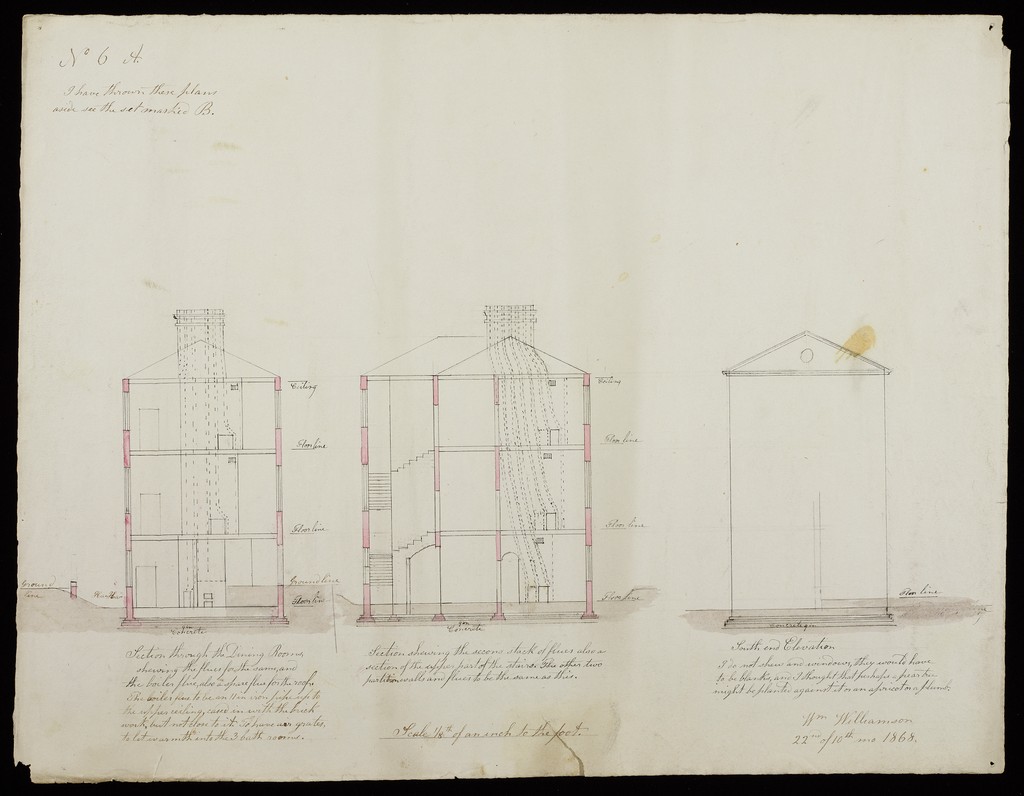 No 6 A.
I have thrown these plans
aside see the set marked B.
Ceiling
Floor line
Floor line
Ground line
Floor line
Ground
line
Concrete
Ceiling
Floor line
Floor line
Floor line
Concrete
Floor line
Concrete
Section through the Dining Rooms,
shewing the flues for the same, and
the boiler flue, also a spare flue for the roofs.
The boiler flue to be an 11 in iron pipe up to
the upper ceiling, cased in with the brick
work, but not close to it. To have air grates,
to let warmth into the 3 bath rooms.
Section shewing the second stack of flues also a
section of the upper part of the stairs. The other two
partition walls and flues to be the same as this.
Scale 1/8th of an inch to the foot.
South end Elevation
I do not shew any windows, they would have
to be blanks, and I thought that perhaps a pear tree
might be planted against it or an apricot or a plumb.
Wm Williamson
22nd of 10th mo 1868.